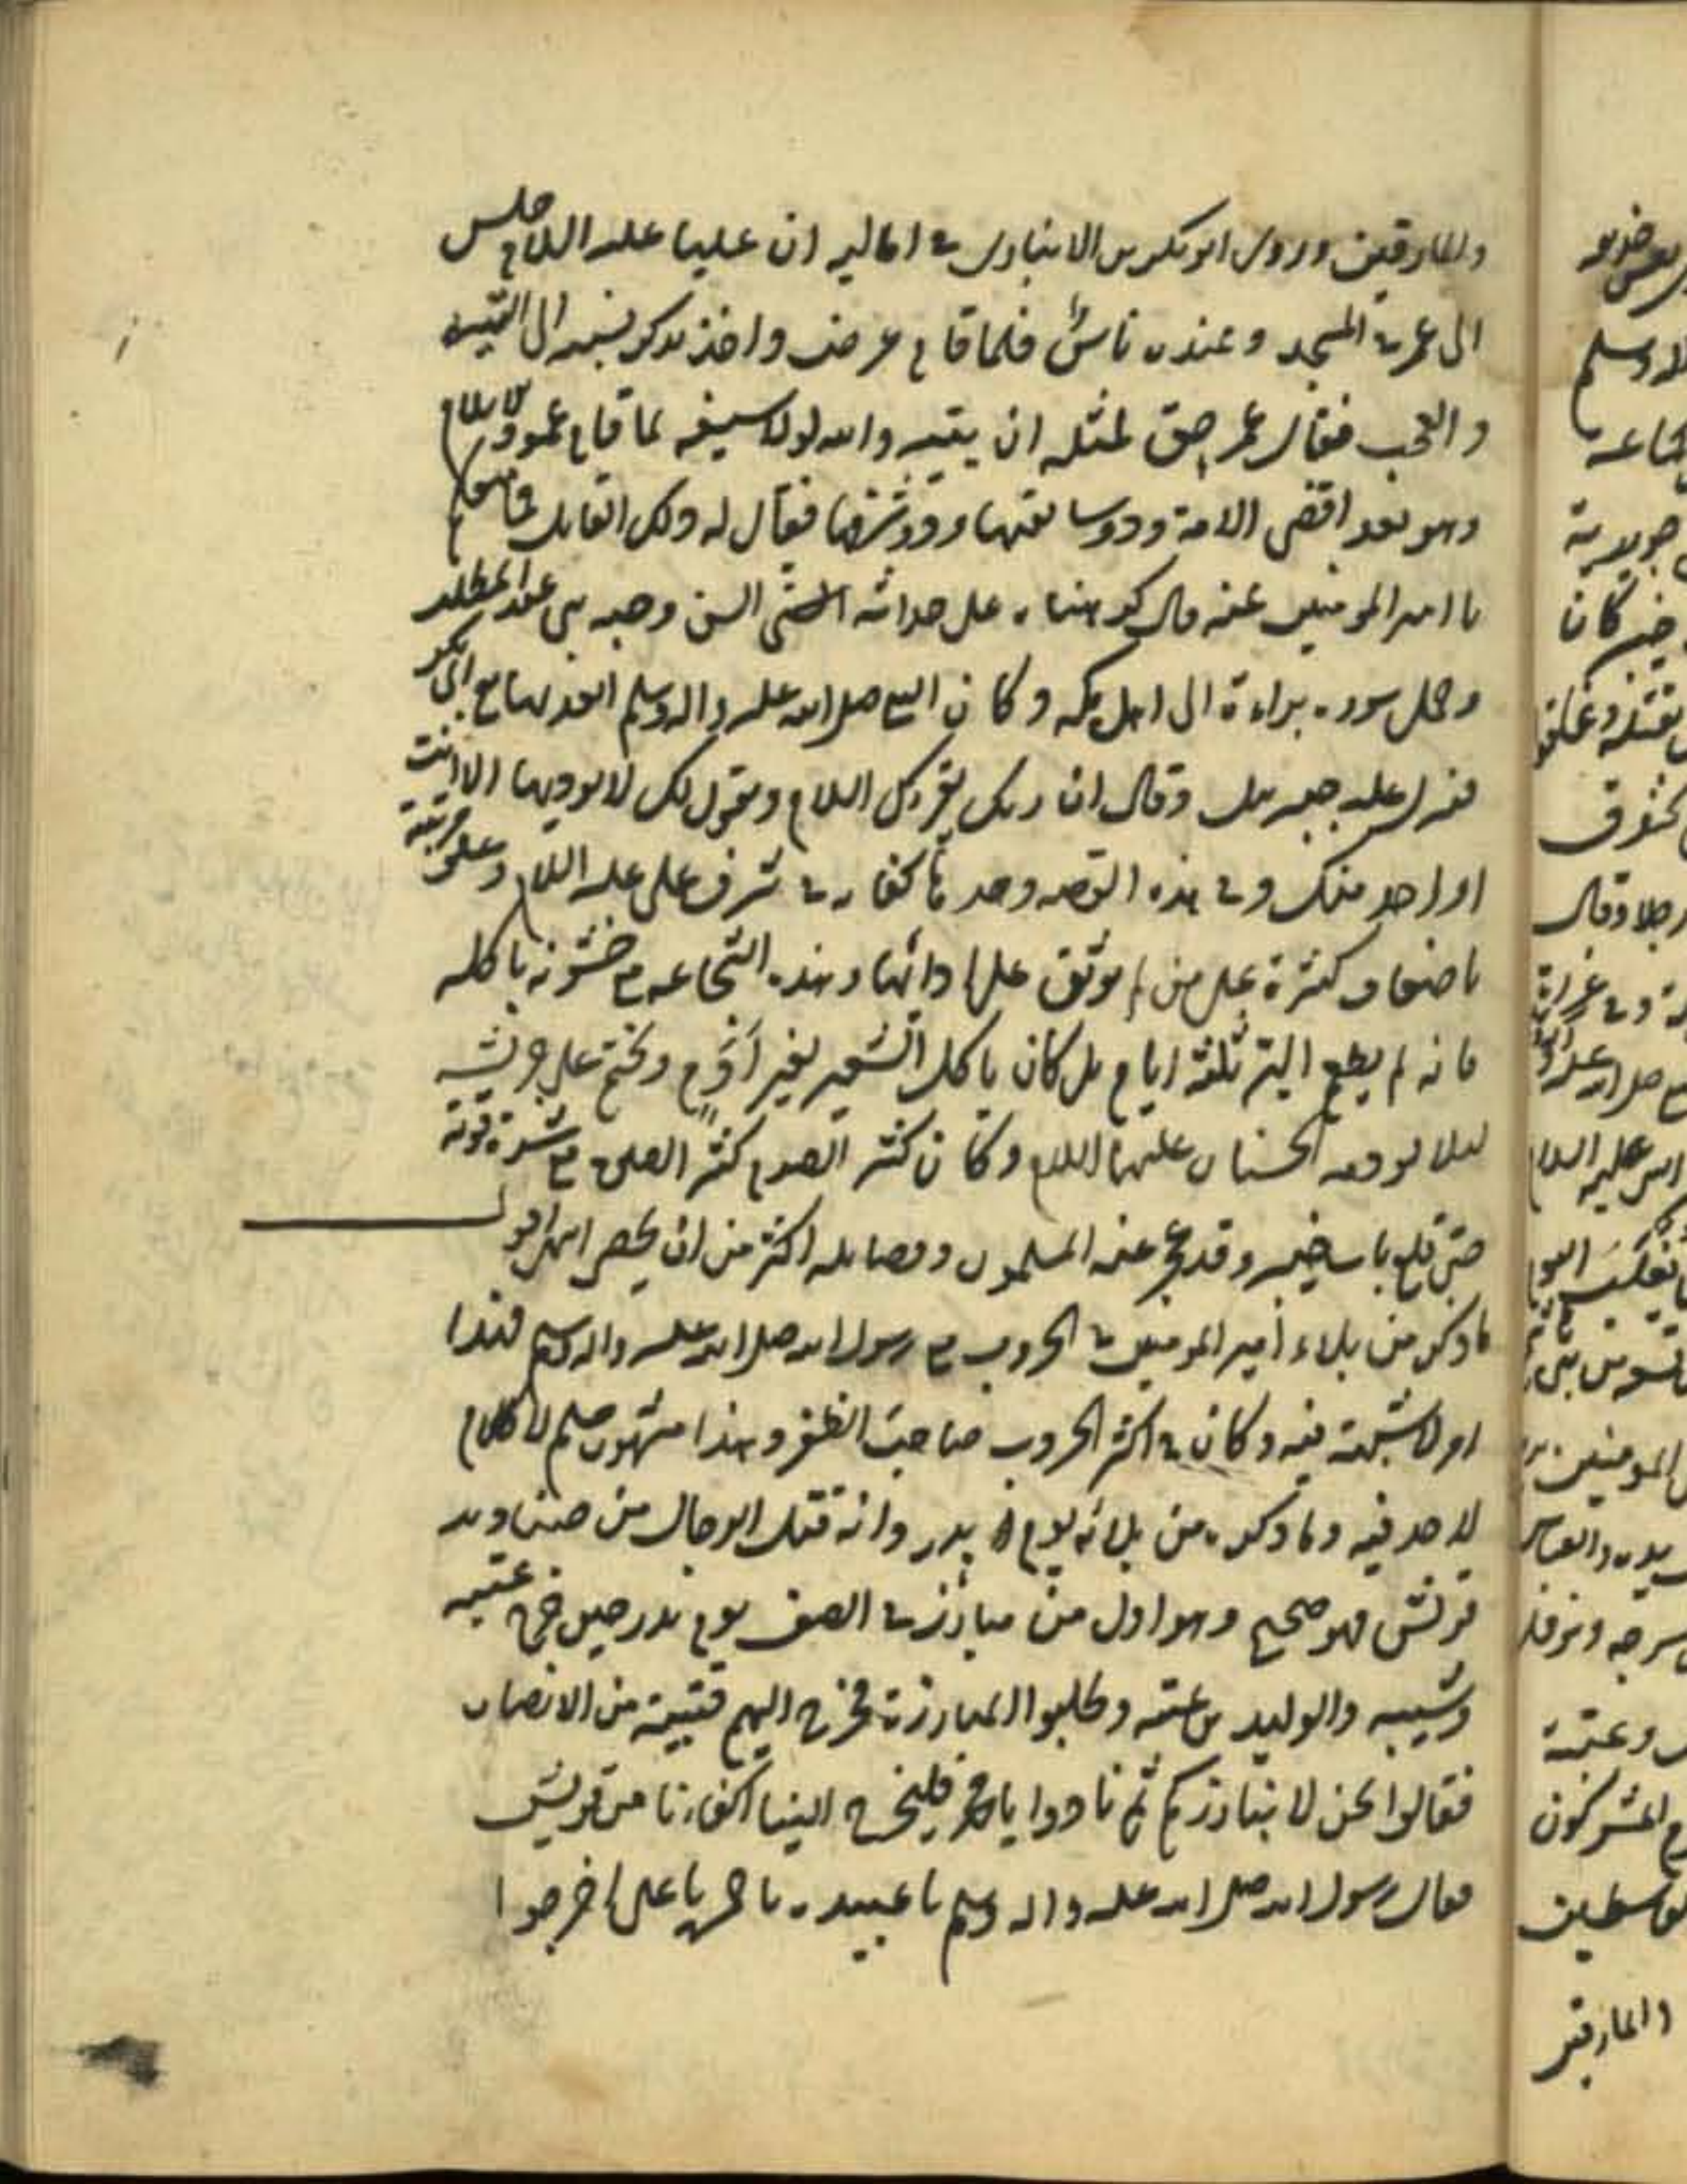 والمارقين وروى ابو بكر بن الانبارى فى اماليه ان عليا عليه السلام جلس
الى عمر فى المسجد وعنده ناس فلما قام عرض واحد بذكره ونسبه الى التيه
والعجب فقال عمر حق لمثله ان يتيه والله لولا سيفه لما قام عمود الاسلام
وهو بعد اقضى الامة وذو سابقتها وذو شرفها فقال له ذلك القائل فما منعكم
يا امير المؤمنين عنه قال كرهناه على حداثة السن وحبه بنى عبد المطلب
وحمل سورة براءة الى اهل مكة وكان النبى صلى الله عليه واله وسلم انفذ بها مع ابى بكر
فنزل عليه جبريل وقال ان ربك يقرئك السلام ويقول لك لا يؤديها الا انت
او احد منك وفى هذه القصه وحدها كفاية فى شرف على عليه السلام وعلو مرتبته
باضعاف كثيرة على من لم يوثق على ادائها وهذه الشجاعه مع خشونة ماكله
فانه لم يطعم البر ثلثة ايام بل كان ياكل الشعير بغير ادم ويختم على جريشه
لئلا يؤدمه الحسنان عليهما السلام وكان كثير الصوم كثير الصلوة مع شدة قوته
حتى قلع باب خيبر وقد عجز عنه المسلمون وفضائله اكثر من ان يحصى انتهى اقول
ما ذكر من بلاء امير المؤمنين فى الحروب مع رسول الله صلى الله عليه واله وسلم فهذا
امر لا شبهة فيه وكان فى اكثر الحروب صاحب الظفر وهذا مشهور مسلم لا كلام
لاحد فيه وما ذكره من بلائه يوم بدر وانه قتل الرجال من صناديد
قريش فهو صحيح وهو اول من مبارز فى الصف يوم بدر حين خرج عتبه
وشيبه والوليد بن عتبه وطلبوا المبارزة فخرج اليهم فتيبة من الانصار
فقالوا نحن لا نبارزكم ثم نادوا يا محمد فليخرج الينا اكفاءنا من قريش
فقال رسول الله صلى الله عليه واله وسلم يا عبيده يا حمزه يا على اخرجوا